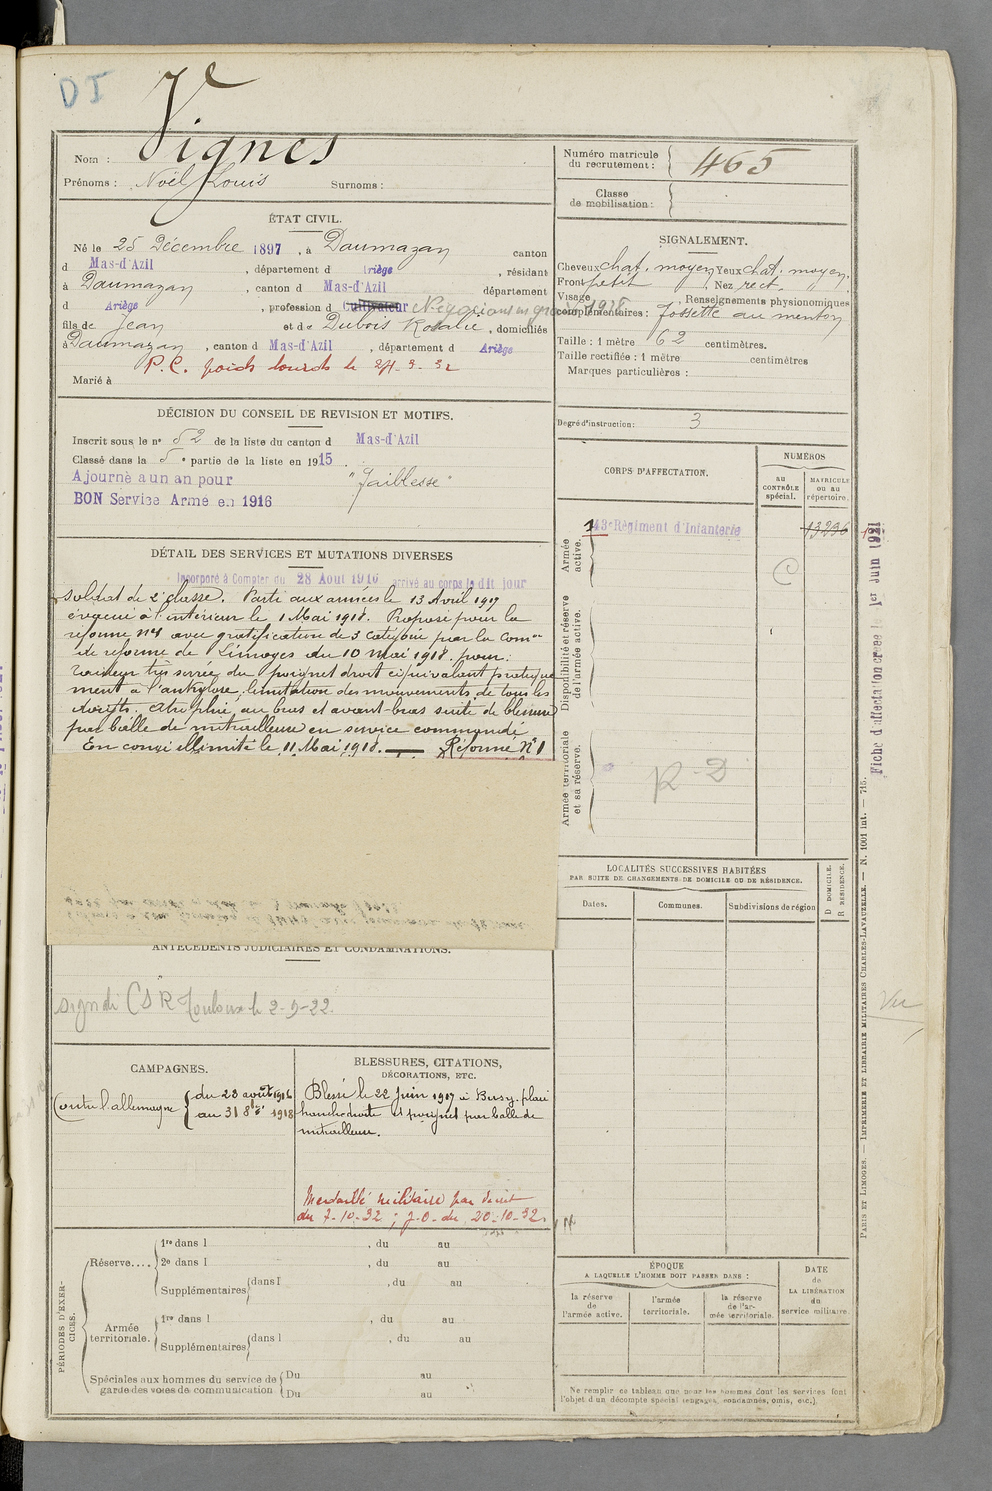 DI
Nom : Vignes
Prénoms : Noël Louis Surnoms :
Numéro matricule du recrutement : 465
Classe de mobilisation :
ÉTAT CIVIL.
Né le 25 Décembre 1897, à Daumazan canton
d Mas-d'Azil, département d Ariège, résidant
à Daumazan, canton d Mas-d'Azil département
d Ariège, profession d cultivateur Négociant en
fils de Jean et de Dubois Rosalie, domiciliés
à Daumazan, canton d Mas-d'Azil, département d Ariège
P.C. poids lourds le 24-3-32
Marié à
SIGNALEMENT.
Cheveux chat. moyen Yeux chat. moyen.
Front petit, Nez rect.
Visage, Renseignements physionomiques
complémentaires : fossette au menton
Taille : 1 mètre 62 centimètres.
Taille rectifiée : 1 mètre centimètres
Marques particulières :
Degré d'instruction : 3
DÉCISION DU CONSEIL DE REVISION ET MOTIFS.
Inscrit sous le n° 52 de la liste du canton d Mas-d'Azil
Classé dans la 5e partie de la liste en 1915.
Ajourné a un an pour "faiblesse"
BON Service Armé en 1916
DÉTAIL DES SERVICES ET MUTATIONS DIVERSES
Incorporé à Compter du 28 Aout 1916 arrivé au corps le dit jour
soldat de 2e classe. Parti aux armées le 13 Avril 1917
évacué à l'intérieur le 1 Mai 1918. Proposé pour la
réforme n°1 avec gratification de 3 catégorie par la Comon
de réforme de Limoges du 10 mai 1918. pour :
raideur très serrée du poignet droit équivalent pratique
ment à l'ankylose, limitation des mouvements de tous les
doigts. Atrophie au bras et avant-bras suite de blessure
par balle de mitrailleuse en service commandé
En congé illimité le 11 Mai 1918. — Réformé N°1
CORPS D'AFFECTATION.
NUMÉROS
au CONTRÔLE spécial.
MATRICULE ou au répertoire.
Armée active.
143e Régiment d'Infanterie 13296
C
Disponibilité et réserve de l'armée active.
Armée territoriale et sa réserve.
R-D
Fiche d'affectation créée le 1er Juin 1921
LOCALITÉS SUCCESSIVES HABITÉES
PAR SUITE DE CHANGEMENTS DE DOMICILE OU DE RÉSIDENCE.
Dates.
Communes.
Subdivisions de région
D DOMICILE.
R RÉSIDENCE.
ANTÉCÉDENTS JUDICIAIRES ET CONDAMNATIONS.
signdi CSR Toulouse le 2-9-22.
Vu
CAMPAGNES.
Contre l'allemagne du 28 août 1916
au 31 8bre 1918
BLESSURES, CITATIONS,
DÉCORATIONS, ETC.
Blessé le 22 Juin 1917 à plaie
hanche droite et poignet par balle de
mitrailleuse.
Médaillé militaire par décret
du 7-10-32 ; J.O. du 20-10-32
PÉRIODES D'EXERCICES.
Réserve....
1re dans l , du au
2e dans l , du au
Supplémentaires dans l , du au
Armée territoriale.
1re dans l , du au
Supplémentaires dans l , du au
Spéciales aux hommes du service de garde des voies de communication
Du au
Du au
ÉPOQUE
A LAQUELLE L'HOMME DOIT PASSER DANS :
la réserve de l'armée active.
l'armée territoriale.
la réserve de l'armée territoriale.
DATE de LA LIBÉRATION du service militaire.
Ne remplir ce tableau que pour les hommes dont les services font
l'objet d'un décompte spécial (engagés, condamnés, omis, etc.).
PARIS ET LIMOGES. — IMPRIMERIE ET LIBRAIRIE MILITAIRES CHARLES-LAVAUZELLE. — N. 1001 int. — 715.